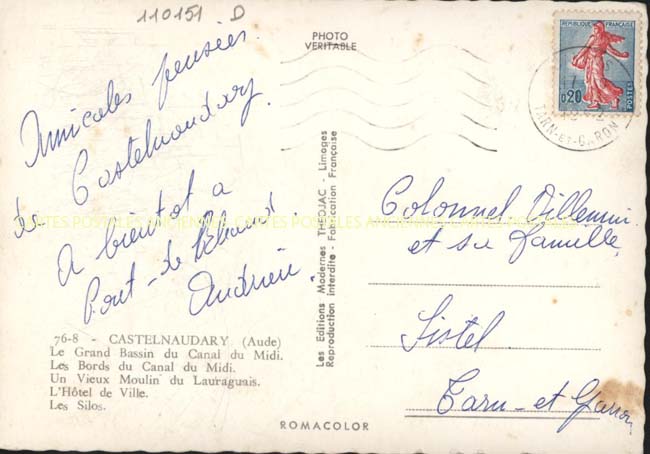 110151 D
PHOTO
VERITABLE
REPUBLIQUE FRANÇAISE
0,20
POSTES
TARN-ET-GARONNE
Amicales pensées
de Castelnaudary
A bientôt a
Pont-de
Andrieu
CARTES POSTALES ANCIENNES CARTES POSTALES ANCIENNES CARTES POSTALES
76-8 - CASTELNAUDARY (Aude)
Le Grand Bassin du Canal du Midi.
Les Bords du Canal du Midi.
Un Vieux Moulin du Lauraguais.
L'Hôtel de Ville.
Les Silos.
Les Editions Modernes THEOJAC - Limoges
Reproduction interdite - Fabrication Française
Colonnel Villemin
et sa famille
Sistel
Tarn-et-Garonne
ROMACOLOR